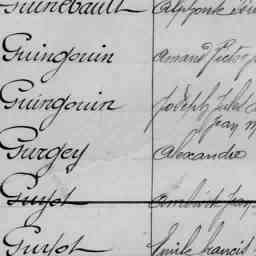 Guinebault
Guingouin Amand Victor
Guingouin Joseph Jules
Jean M
Gurgey Alexandre
Guyot
Guyot Emile Francis